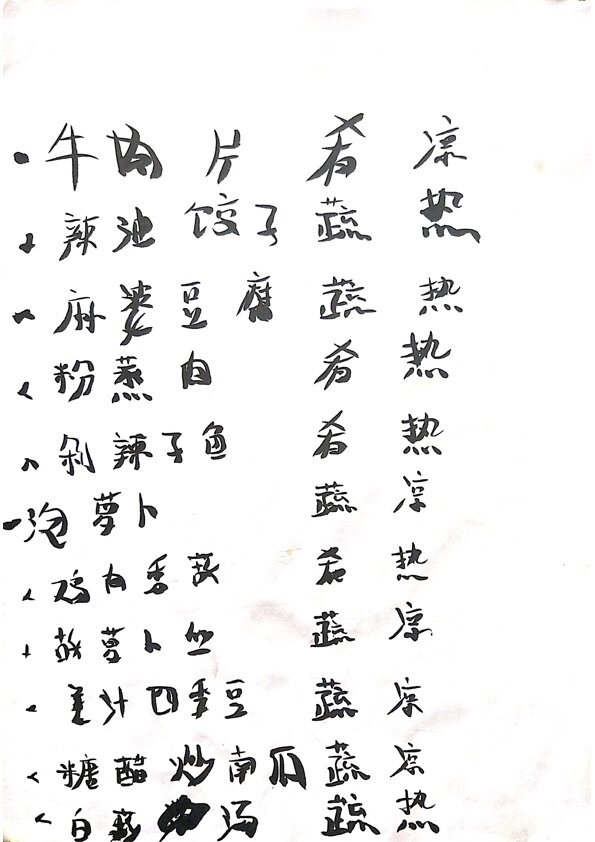 牛肉片 肴 凉
辣油饺子 蔬 热
麻婆豆腐 蔬 热
粉蒸肉 肴 热
剁辣子鱼 肴 热
泡萝卜 蔬 凉
鸡肉香菇 肴 热
萝卜丝 蔬 凉
姜汁四季豆 蔬 凉
糖醋炒南瓜 蔬 凉
白 汤 蔬 热